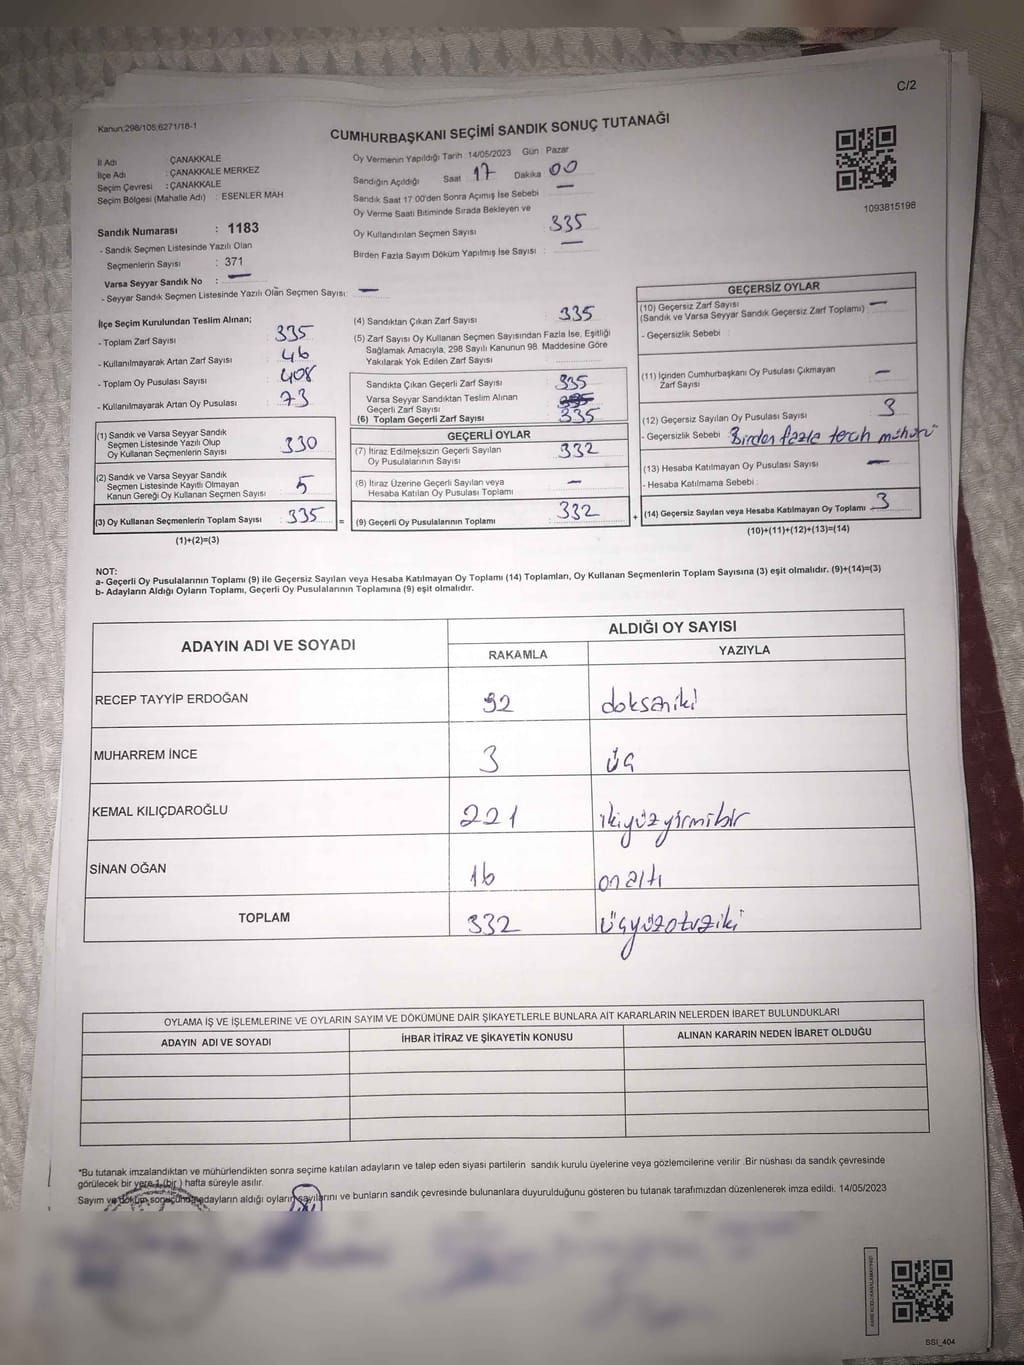 C/2
Kanun;298/105;6271/18-1
CUMHURBAŞKANI SEÇİMİ SANDIK SONUÇ TUTANAĞI
İl Adı ÇANAKKALE
İlçe Adı : ÇANAKKALE MERKEZ
Seçim Çevresi : ÇANAKKALE
Seçim Bölgesi (Mahalle Adı) : ESENLER MAH
Sandık Numarası : 1183
- Sandık Seçmen Listesinde Yazılı Olan
Seçmenlerin Sayısı : 371
Varsa Seyyar Sandık No : —
- Seyyar Sandık Seçmen Listesinde Yazılı Olan Seçmen Sayısı: —
Oy Vermenin Yapıldığı Tarih : 14/05/2023 Gün : Pazar
Sandığın Açıldığı Saat 17 Dakika 00
Sandık Saat 17:00'den Sonra Açımış İse Sebebi —
Oy Verme Saati Bitiminde Sırada Bekleyen ve
Oy Kullandırılan Seçmen Sayısı 335
Birden Fazla Sayım Döküm Yapılmış İse Sayısı : —
1093815198
İlçe Seçim Kurulundan Teslim Alınan;
- Toplam Zarf Sayısı : 335
- Kullanılmayarak Artan Zarf Sayısı : 46
- Toplam Oy Pusulası Sayısı : 408
- Kullanılmayarak Artan Oy Pusulası : 73
(1) Sandık ve Varsa Seyyar Sandık
Seçmen Listesinde Yazılı Olup
Oy Kullanan Seçmenlerin Sayısı 330
(2) Sandık ve Varsa Seyyar Sandık
Seçmen Listesinde Kayıtlı Olmayan
Kanun Gereği Oy Kullanan Seçmen Sayısı 5
(3) Oy Kullanan Seçmenlerin Toplam Sayısı 335 =
(1)+(2)=(3)
(4) Sandıktan Çıkan Zarf Sayısı 335
(5) Zarf Sayısı Oy Kullanan Seçmen Sayısından Fazla İse, Eşitliği
Sağlamak Amacıyla, 298 Sayılı Kanunun 98. Maddesine Göre
Yakılarak Yok Edilen Zarf Sayısı
Sandıkta Çıkan Geçerli Zarf Sayısı 335
Varsa Seyyar Sandıktan Teslim Alınan
Geçerli Zarf Sayısı
(6) Toplam Geçerli Zarf Sayısı 335
GEÇERLİ OYLAR
(7) İtiraz Edilmeksizin Geçerli Sayılan
Oy Pusulalarının Sayısı 332
(8) İtiraz Üzerine Geçerli Sayılan veya
Hesaba Katılan Oy Pusulası Toplamı —
(9) Geçerli Oy Pusulalarının Toplamı 332 +
GEÇERSİZ OYLAR
(10) Geçersiz Zarf Sayısı —
(Sandık ve Varsa Seyyar Sandık Geçersiz Zarf Toplamı)
- Geçersizlik Sebebi :
(11) İçinden Cumhurbaşkanı Oy Pusulası Çıkmayan
Zarf Sayısı —
(12) Geçersiz Sayılan Oy Pusulası Sayısı 3
- Geçersizlik Sebebi Birden fazla tercih mührü
(13) Hesaba Katılmayan Oy Pusulası Sayısı —
- Hesaba Katılmama Sebebi :
(14) Geçersiz Sayılan veya Hesaba Katılmayan Oy Toplamı 3
(10)+(11)+(12)+(13)=(14)
NOT:
a- Geçerli Oy Pusulalarının Toplamı (9) ile Geçersiz Sayılan veya Hesaba Katılmayan Oy Toplamı (14) Toplamları, Oy Kullanan Seçmenlerin Toplam Sayısına (3) eşit olmalıdır. (9)+(14)=(3)
b- Adayların Aldığı Oyların Toplamı, Geçerli Oy Pusulalarının Toplamına (9) eşit olmalıdır.
ADAYIN ADI VE SOYADI
ALDIĞI OY SAYISI
RAKAMLA YAZIYLA
RECEP TAYYİP ERDOĞAN 92 doksaniki
MUHARREM İNCE 3 üç
KEMAL KILIÇDAROĞLU 221 ikiyüzyirmibir
SİNAN OĞAN 16 onaltı
TOPLAM 332 üçyüzotuziki
OYLAMA İŞ VE İŞLEMLERİNE VE OYLARIN SAYIM VE DÖKÜMÜNE DAİR ŞİKAYETLERLE BUNLARA AİT KARARLARIN NELERDEN İBARET BULUNDUKLARI
ADAYIN ADI VE SOYADI İHBAR İTİRAZ VE ŞİKAYETİN KONUSU ALINAN KARARIN NEDEN İBARET OLDUĞU
*Bu tutanak imzalandıktan ve mühürlendikten sonra seçime katılan adayların ve talep eden siyasi partilerin sandık kurulu üyelerine veya gözlemcilerine verilir .Bir nüshası da sandık çevresinde
görülecek bir yere 1 (bir ) hafta süreyle asılır.
Sayım ve döküm sonucunda adayların aldığı oyların sayılarını ve bunların sandık çevresinde bulunanlara duyurulduğunu gösteren bu tutanak tarafımızdan düzenlenerek imza edildi. 14/05/2023
SSI_404